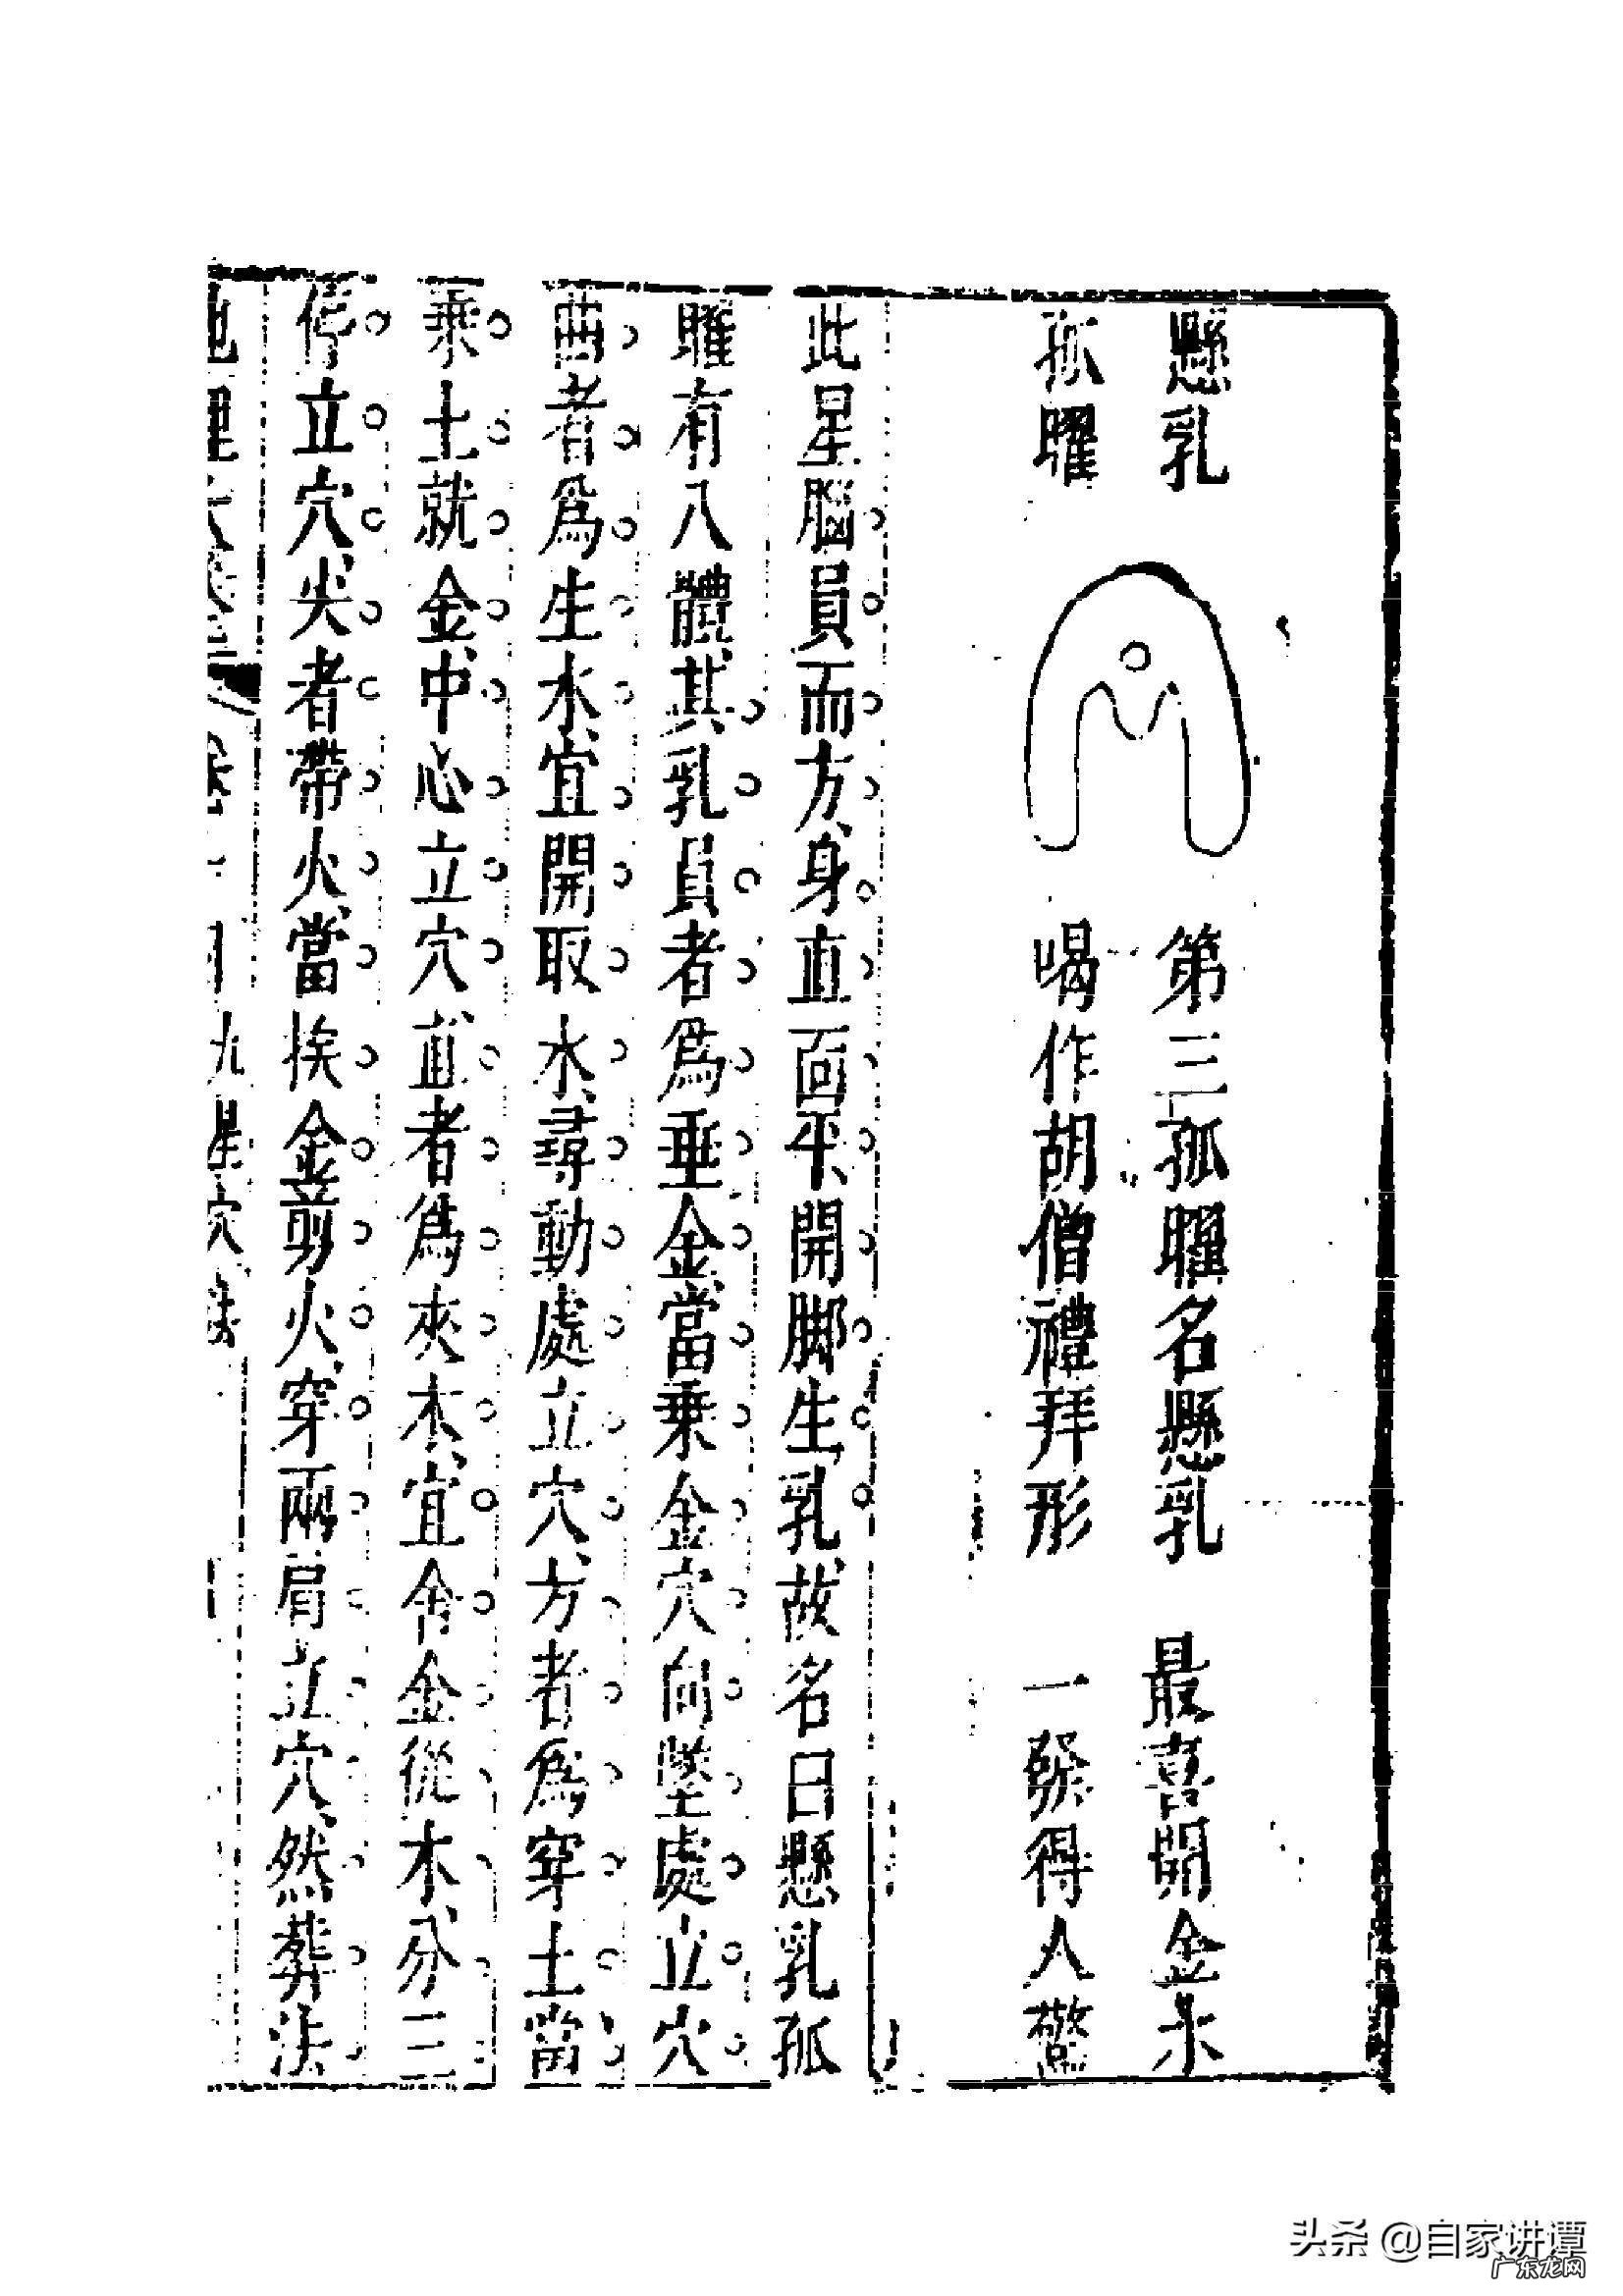 懸乳
孤曜
第三孤曜名懸乳　最喜開金水
喝作胡僧禮拜形　一發得人驚
此星腦員而方身直面平開脚生乳故名曰懸乳孤
曜有八體其乳員者爲垂金當乘金穴向墜處立穴
曲者爲生水宜開取水尋動處立穴方者爲穿土當
乘土就金中心立穴直者爲夾木宜舍金從木分三
停立穴尖者帶火當挨金剪火穿兩肩立穴然葬法
地理大
九星穴法
头条 @自家讲谭
广东龙网